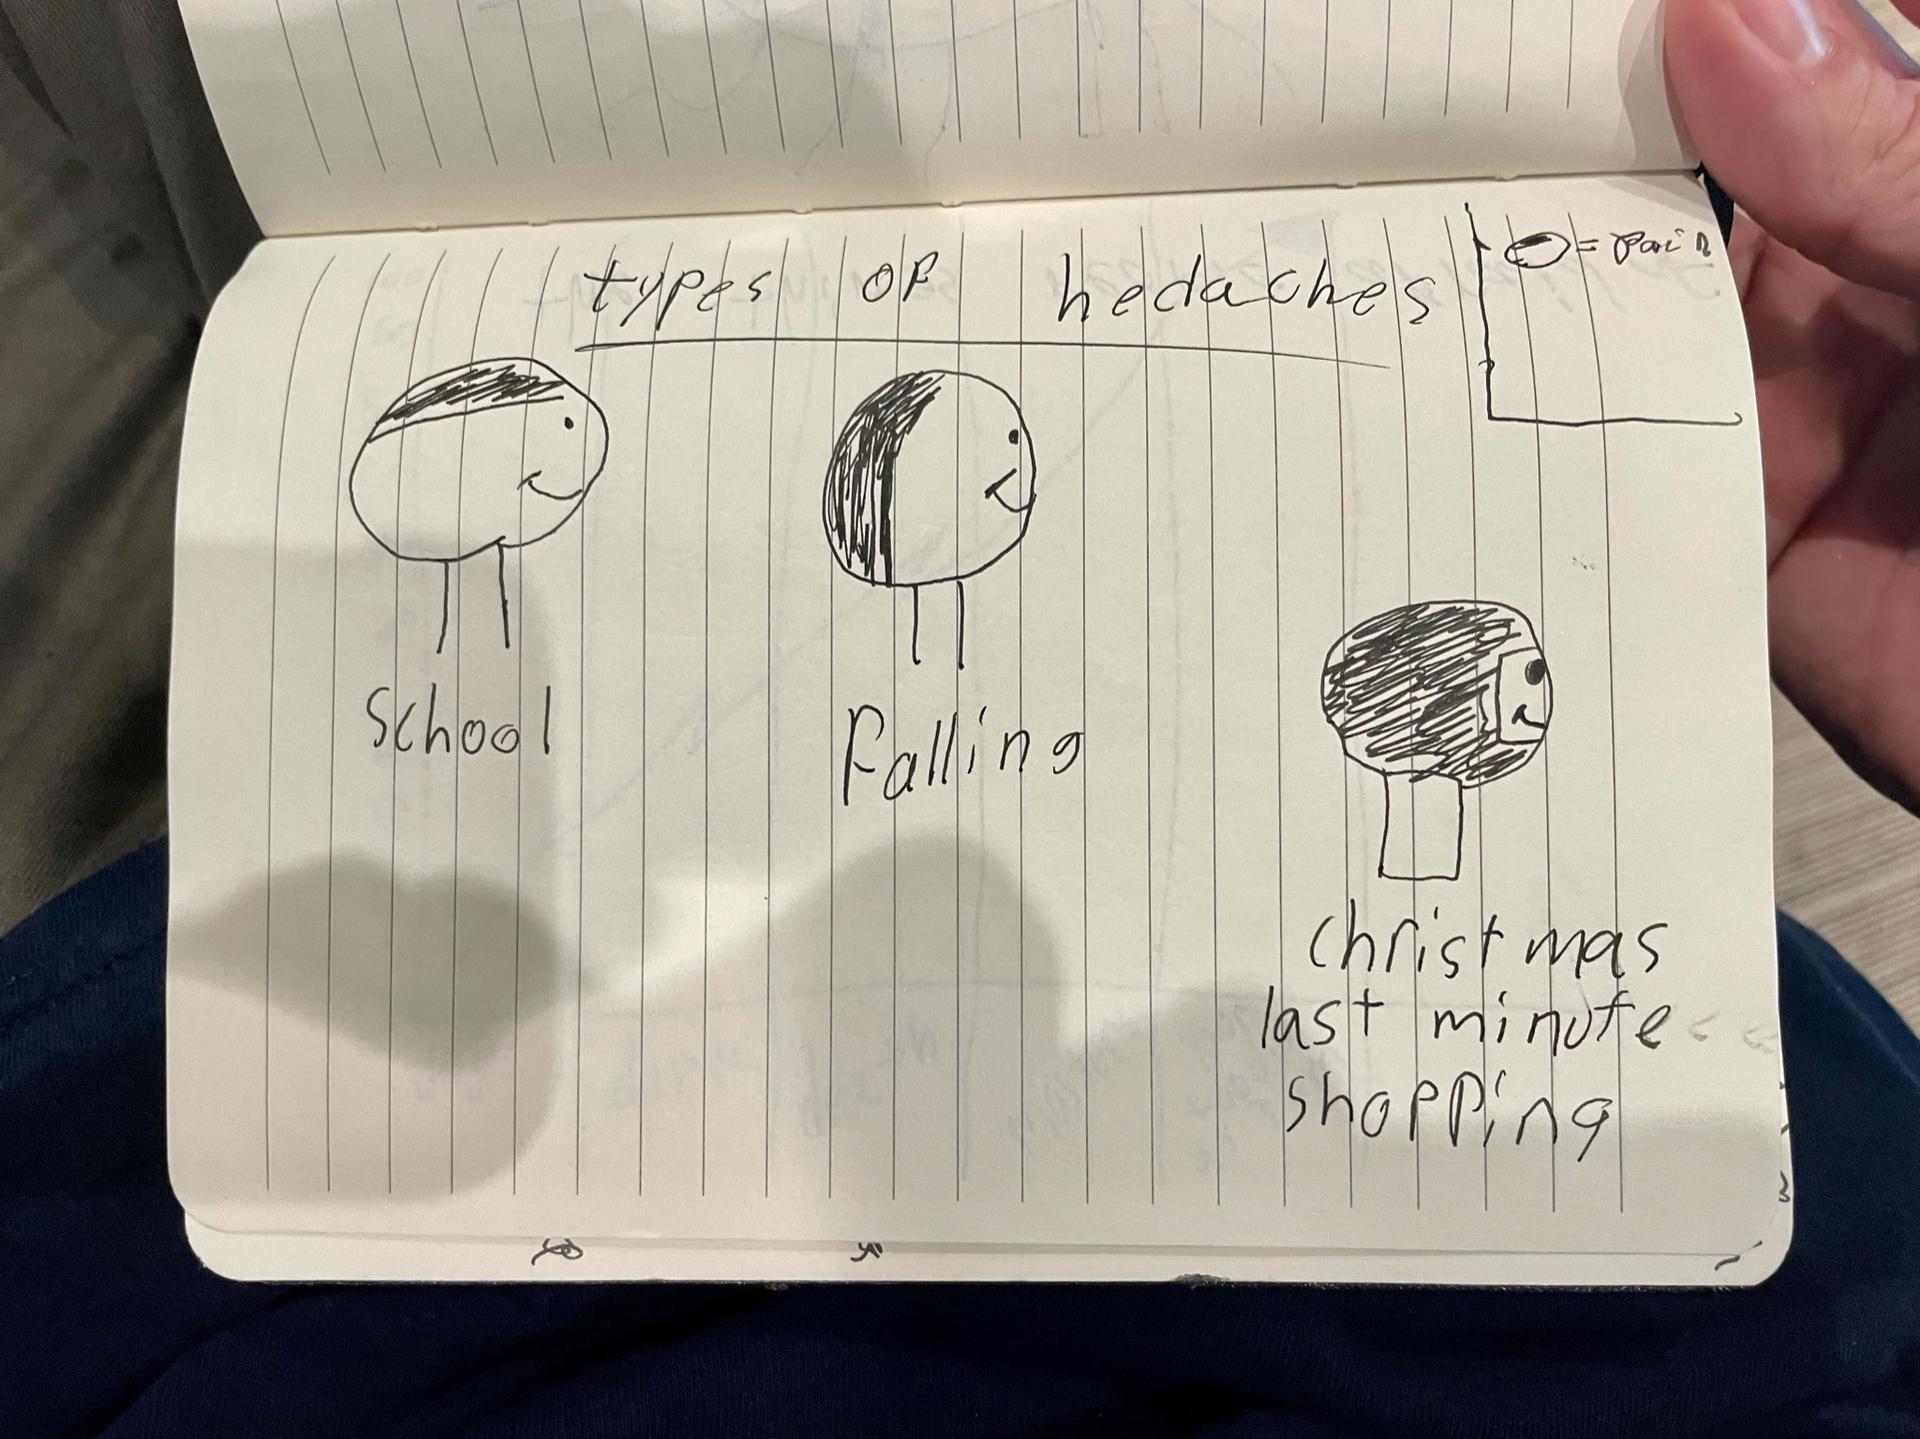 types of hedaches
= pain
school
falling
christmas
last minute
shopping